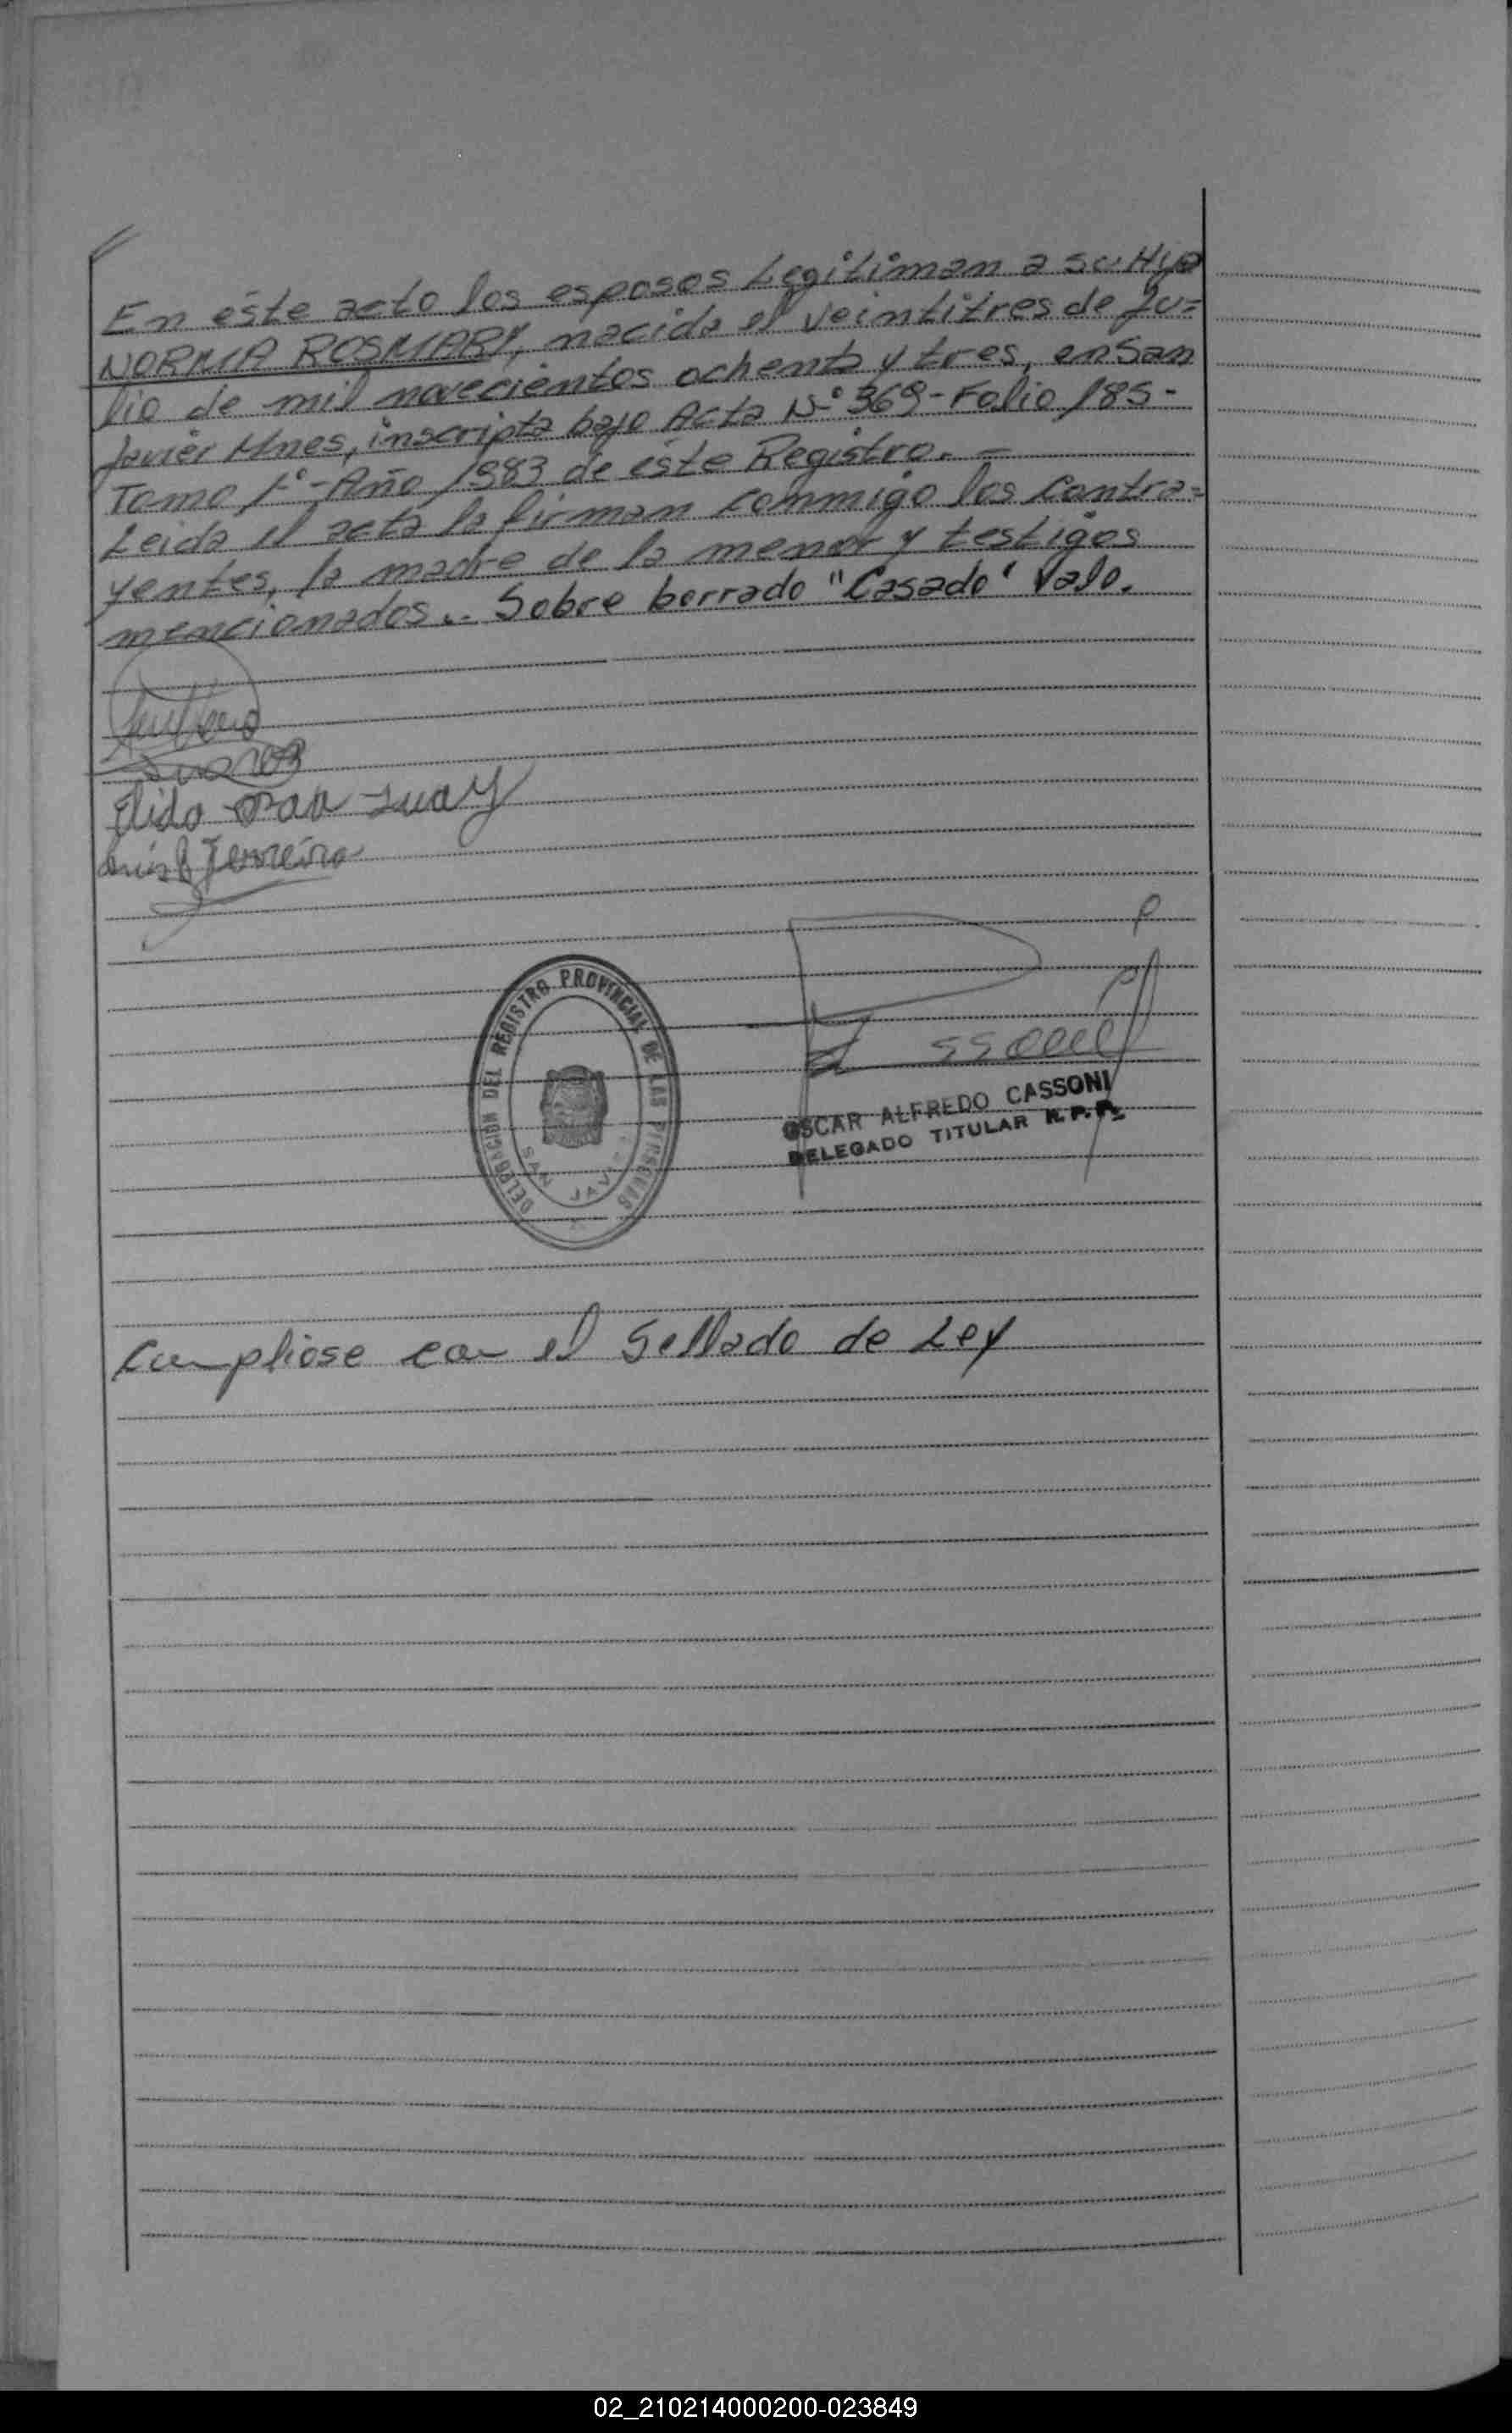 En éste acto los esposos Legitiman a su Hija
NORMA ROSMARY, nacida el veintitres de Ju=
lio de mil novecientos ochenta y tres, en San
Javier Mnes, inscripta bajo Acta N° 369-Folio 185-
Tomo 1°-Año 1983 de éste Registro. -
Leida el acta la firman conmigo los contra=
yentes, la madre de la menor y testigos
mencionados.. Sobre borrado "Casado" Vale.
Luis Ferreira
DELEGACION DEL REGISTRO PROVINCIAL DE LAS PERSONAS
SAN JAVIER
OSCAR ALFREDO CASSONI
DELEGADO TITULAR R. P. P.
Cumpliose con el Sellado de Ley
02_210214000200-023849